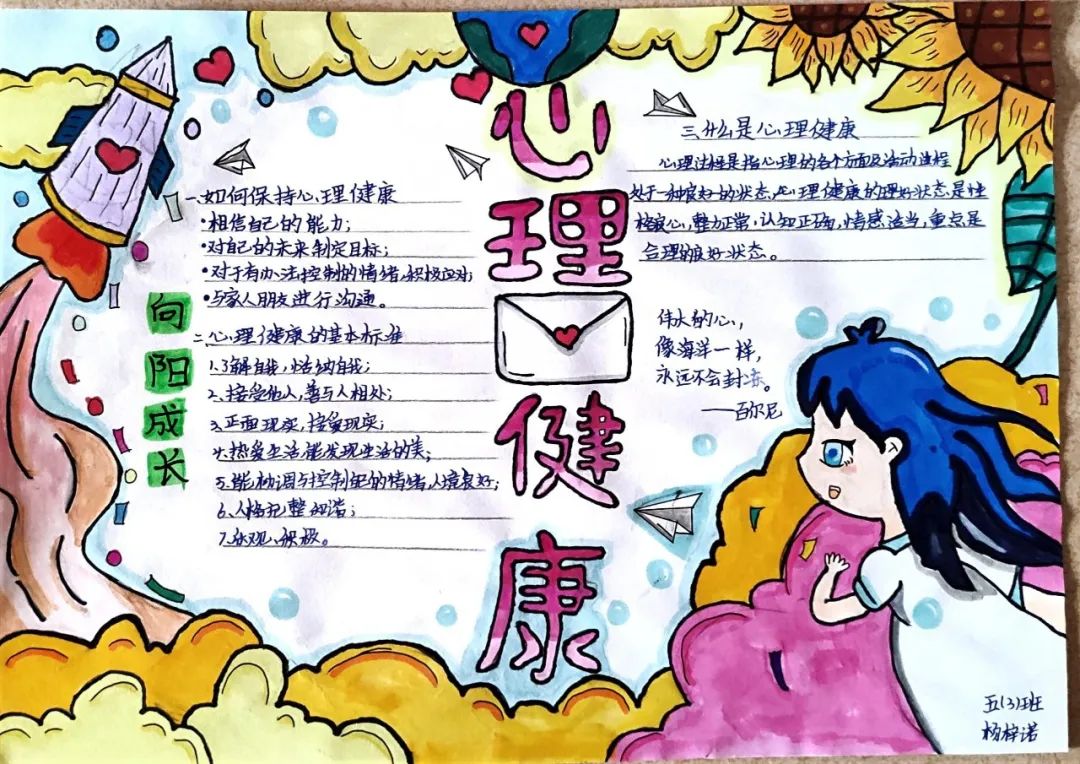 心理健康
向阳成长
一、如何保持心理健康
•相信自己的能力；
•对自己的未来制定目标；
•对于有办法控制的情绪，积极应对；
•与家人朋友进行沟通。
二、心理健康的基本标准
1、了解自我，悦纳自我；
2、接受他人，善与人相处；
3、正面现实，接受现实；
4、热爱生活，能发现生活的美；
5、能协调与控制的情绪，心境良好；
6、人格完整和谐；
7、乐观、积极。
三、什么是心理健康
心理过程是指心理的各个方面及活动过程
处于一种良好的状态，心理健康的理好状态是性
格良心，智力正常，认知正确，情感适当，重点是
合理的良好状态。
伟大的心，
像海洋一样，
永远不会封冻。
——百尔尼
五(3)班
杨梓诺